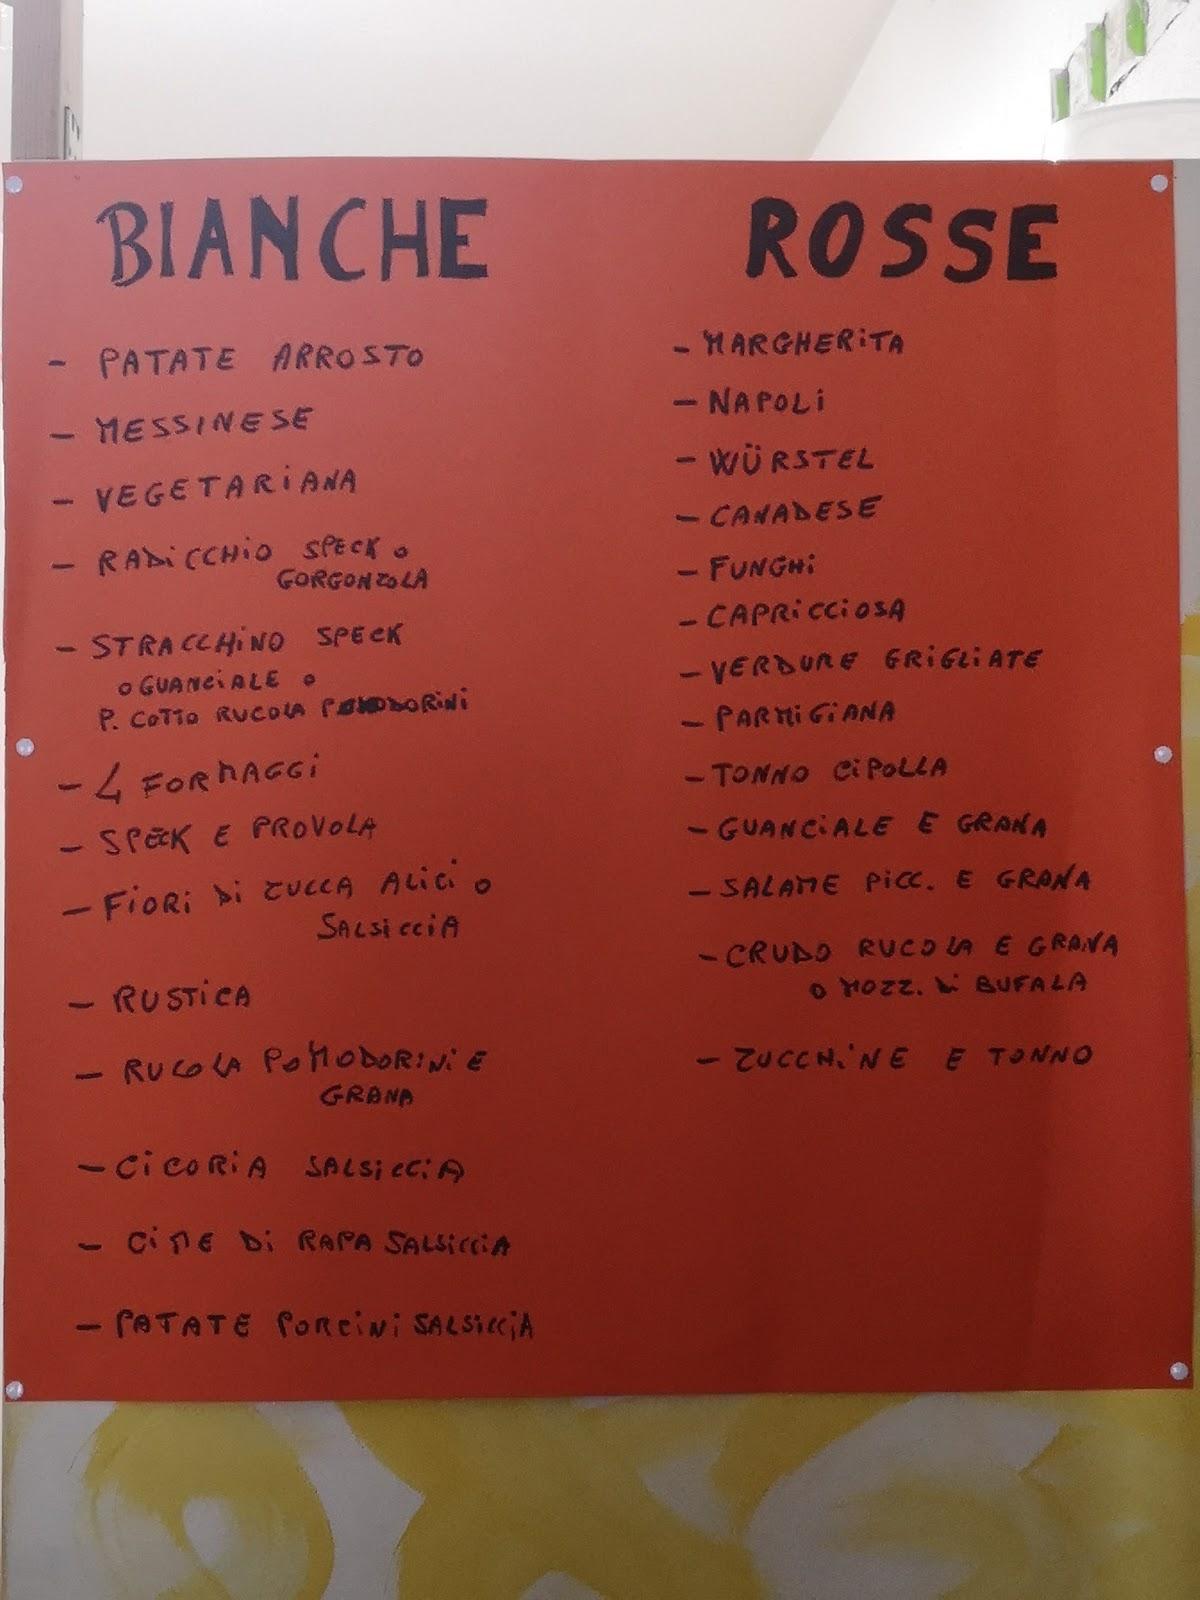 BIANCHE
- PATATE ARROSTO
- MESSINESE
- VEGETARIANA
- RADICCHIO SPECK O
GORGONZOLA
- STRACCHINO SPECK
O GUANCIALE O
P. COTTO RUCOLA POMODORINI
- 4 FORMAGGI
- SPECK E PROVOLA
- FIORI DI ZUCCA ALICI O
SALSICCIA
- RUSTICA
- RUCOLA POMODORINI E
GRANA
- CICORIA SALSICCIA
- CIME DI RAPA SALSICCIA
- PATATE PORCINI SALSICCIA
ROSSE
- MARGHERITA
- NAPOLI
- WÜRSTEL
- CANADESE
- FUNGHI
- CAPRICCIOSA
- VERDURE GRIGLIATE
- PARMIGIANA
- TONNO CIPOLLA
- GUANCIALE E GRANA
- SALAME PICC. E GRANA
- CRUDO RUCOLA E GRANA
O MOZZ. DI BUFALA
- ZUCCHINE E TONNO